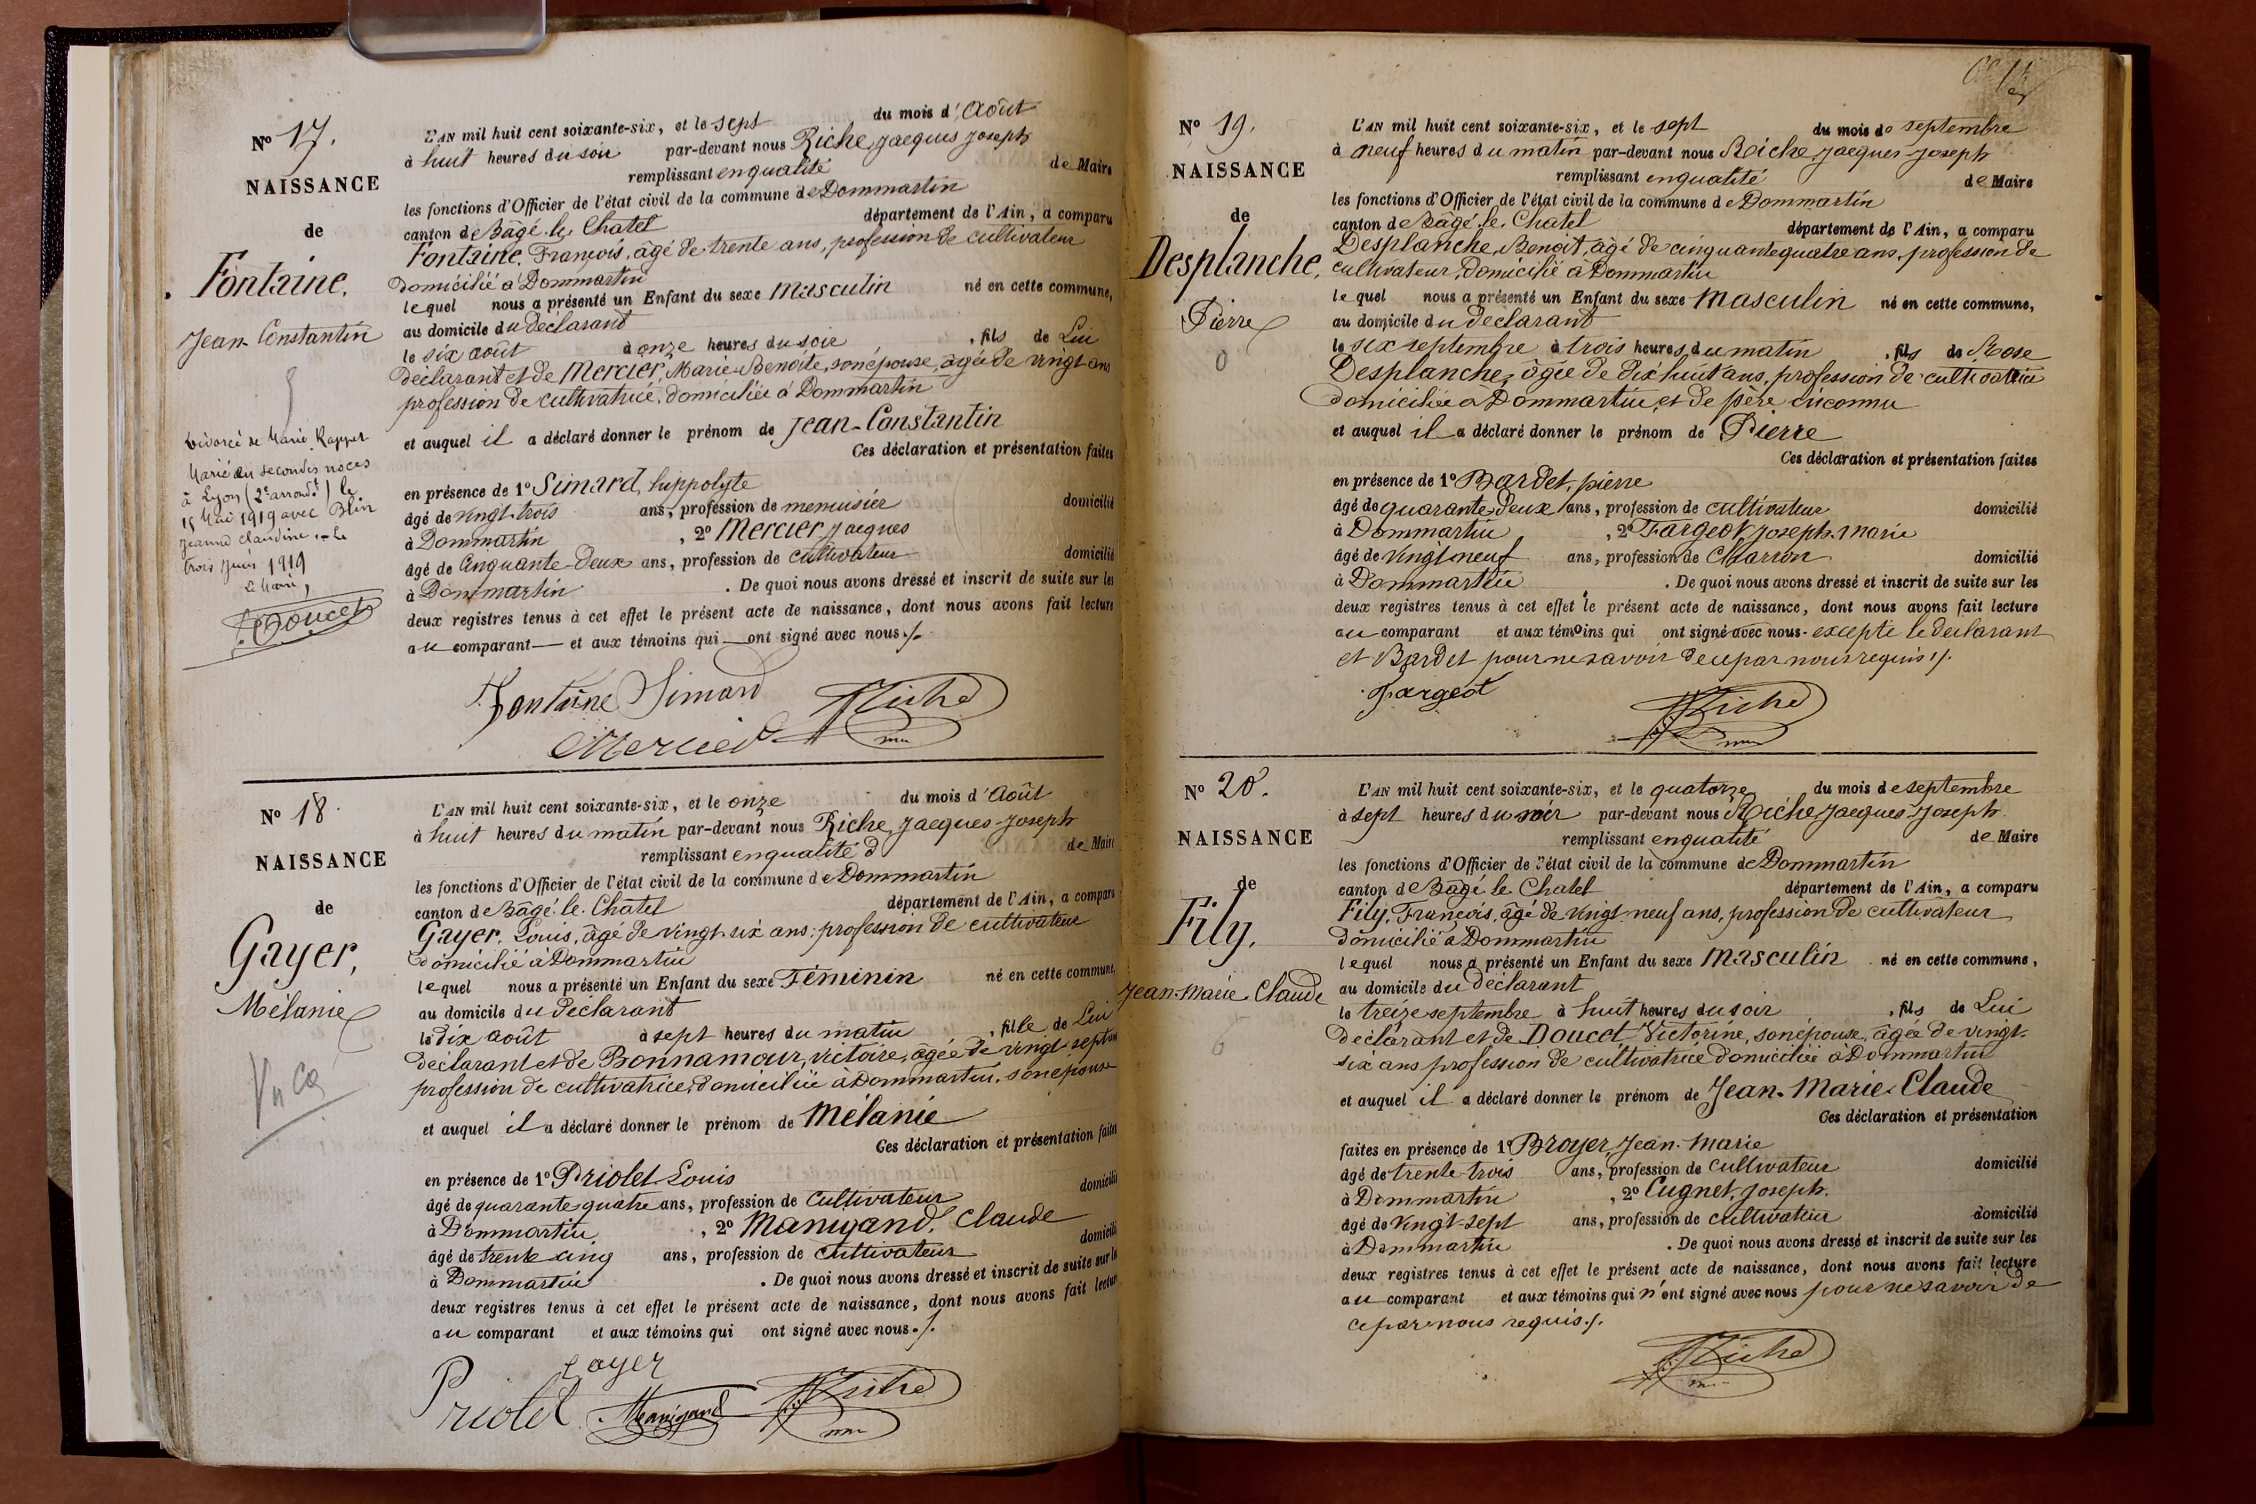 Nº 17.
NAISSANCE
de
Fontaine,
Jean-Constantin
Divorcé de Marie Rapper
Marié en secondes noces
à Lyon (2e arrondt) le
15 Mai 1919 avec Blin
Jeanne Claudine. - Le
trois juin 1919
Le Maire,
Doucet
L'AN mil huit cent soixante-six, et le sept du mois d'Août
à huit heures du soir par-devant nous Riche, Jacques Joseph
remplissant en qualité de Maire
les fonctions d'Officier de l'état civil de la commune de Dommartin
canton de Bâgé-le-Chatel département de l'Ain, a comparu
Fontaine, François, âgé de trente ans, profession de cultivateur
domicilié à Dommartin
lequel nous a présenté un Enfant du sexe Masculin né en cette commune,
au domicile du déclarant
le six août à onze heures du soir, fils de Lui
déclarant et de Mercier, Marie-Benoite, son épouse, âgée de vingt ans
profession de cultivatrice, domiciliée à Dommartin
et auquel il a déclaré donner le prénom de Jean-Constantin
Ces déclaration et présentation faites
en présence de 1º Simard, hippolyte
âgé de vingt-trois ans, profession de menuisier domicilié
à Dommartin, 2º Mercier, Jacques
âgé de Cinquante-Deux ans, profession de cultivateur domicilié
à Dommartin. De quoi nous avons dressé et inscrit de suite sur les
deux registres tenus à cet effet le présent acte de naissance, dont nous avons fait lecture
au comparant — et aux témoins qui — ont signé avec nous ./.
Fontaine Simard Riche
Mercier
Nº 18.
NAISSANCE
de
Gayer,
Mélanie
L'AN mil huit cent soixante-six, et le onze du mois d'Août
à huit heures du matin par-devant nous Riche, Jacques Joseph
remplissant en qualité d de Maire
les fonctions d'Officier de l'état civil de la commune de Dommartin
canton de Bâgé-le-Châtel département de l'Ain, a comparu
Gayer, Louis, âgé de vingt-six ans; profession de cultivateur
domicilié à Dommartin
lequel nous a présenté un Enfant du sexe Féminin né en cette commune,
au domicile du déclarant
le dix août à sept heures du matin, fille de Lui
déclarant et de Bonnamour, victoire, âgée de vingt-sept ans
profession de cultivatrice, domiciliée à Dommartin, son épouse
et auquel il a déclaré donner le prénom de Mélanie
Ces déclaration et présentation faites
en présence de 1º Priolet Louis
âgé de quarante quatre ans, profession de Cultivateur domicilié
à Dommartin, 2º Manigand, Claude
âgé de trente cinq ans, profession de cultivateur domicilié
à Dommartin. De quoi nous avons dressé et inscrit de suite sur les
deux registres tenus à cet effet le présent acte de naissance, dont nous avons fait lecture
au comparant et aux témoins qui ont signé avec nous ./.
Gayer
Priolet Manigand Riche
Nº 19.
NAISSANCE
de
Desplanche,
Pierre
0
L'AN mil huit cent soixante-six, et le sept du mois de septembre
à neuf heures du matin par-devant nous Riche, Jacques Joseph
remplissant en qualité de Maire
les fonctions d'Officier de l'état civil de la commune de Dommartin
canton de Bâgé-le-Chatel département de l'Ain, a comparu
Desplanche, Benoit, âgé de cinquante quatre ans, profession de
cultivateur, domicilié à Dommartin
lequel nous a présenté un Enfant du sexe Masculin né en cette commune,
au domicile du déclarant
le six septembre à trois heures du matin, fils de Rose
Desplanche, âgée de dix huit ans, profession de cultivatrice
domiciliée à Dommartin, et de père inconnu
et auquel il a déclaré donner le prénom de Pierre
Ces déclaration et présentation faites
en présence de 1º Bardet, pierre
âgé de quarante Deux ans, profession de cultivateur domicilié
à Dommartin, 2º Fargeot, Joseph-Marie
âgé de vingt neuf ans, profession de Charron domicilié
à Dommartin. De quoi nous avons dressé et inscrit de suite sur les
deux registres tenus à cet effet le présent acte de naissance, dont nous avons fait lecture
au comparant et aux témoins qui ont signé avec nous. excepté le déclarant
et Bardet pour ne savoir de ce par nous requis ./.
Fargeot Riche
Nº 20.
NAISSANCE
de
Fily,
Jean-Marie Claude
6
L'AN mil huit cent soixante-six, et le quatorze du mois de septembre
à sept heures du soir par-devant nous Riche, Jacques Joseph
remplissant en qualité de Maire
les fonctions d'Officier de l'état civil de la commune de Dommartin
canton de Bâgé le Chatel département de l'Ain, a comparu
Fily, François, âgé de vingt neuf ans, profession de cultivateur
domicilié à Dommartin
lequel nous a présenté un Enfant du sexe Masculin né en cette commune,
au domicile du déclarant
le treize septembre à huit heures du soir, fils de Lui
déclarant et de Doucet Victorine, son épouse, âgée de vingt-
six ans profession de cultivatrice domiciliée à Dommartin
et auquel il a déclaré donner le prénom de Jean-Marie-Claude
Ces déclaration et présentation
faites en présence de 1º Broyer, Jean-Marie
âgé de trente-trois ans, profession de cultivateur domicilié
à Dommartin, 2º Cugnet, Joseph.
âgé de vingt-sept ans, profession de cultivateur domicilié
à Dommartin. De quoi nous avons dressé et inscrit de suite sur les
deux registres tenus à cet effet le présent acte de naissance, dont nous avons fait lecture
au comparant et aux témoins qui n'ont signé avec nous pour ne savoir de
ce par nous requis ./.
Riche